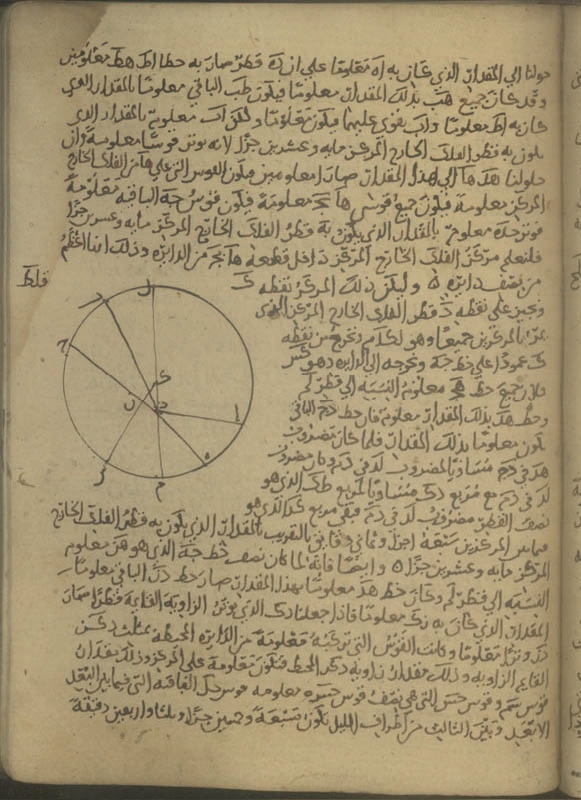 حولنا الي المقدار الذي كان به اه معلوما علي ان ده قطر صار به خطا اط هط معلومين
وقد كان جميع هب بذلك المقدار معلوما فيكون طب الباقي معلوما بالمقدار الذي
كان به اط معلوما و اب يقوي عليهما فيكون معلوما ولكن اب معلوم بالمقدار الذي
يكون به قطر الفلك الخارج المركز مايه وعشرين جزا لانه يوتر قوسا معلومة فان
حولنا هد ها الي هذا المقدار صارا معلومين فتكون القوس التي علي ها من الفلك الخارج
المركز معلومة فيكون جميع قوس ها بج معلومة فيكون قوس جه الباقيه معلومة
فوتر جه معلوم بالمقدار الذي يكون به قطر الفلك الخارج المركز مايه وعشرين جزا
فلنعلم مركز الفلك الخارج المركز داخل قطعة ها بج من الدايره وذلك انها اعظم
من نصف دايره وليكن ذلك المركز نقطه ك
ونجيز علي نقطه د قطر الفلك الخارج المركز الذي
يمر بالمركزين جميعا وهو لكدم ونخرج من نقطه
ك عمودا علي خط جه ونخرجه الي الدايره وهو كنس
فلان جميع خط جه معلوم النسبه الي قطر لم
وخط هد بذلك المقدار معلوم فان خط دج الباقي
يكون معلوما بذلك المقدار فلما كان مضروب
هد في دج مساويا لمضروب لد في دم وكان مضروب
لد في دم مع مربع دك مساويا لمربع كل الذي هو
نصف القطر مضروب لد في دم فبقي مربع دك الذي هو
فيما بين المركزين سبعة اجزا وثماني دقايق بالتقريب بالمقدار الذي يكون به قطر الفلك الخارج
المركز مايه وعشرين جزا وايضا فانه لما كان نصف خط جه الذي هو هن معلوم
النسبه الي قطر لم وكان خط هد معلوما بهذا المقدار صار خط دن الباقي معلوما
المقدار الذي كان به دك معلوما فاذا جعلنا دك الذي يوتر الزاويه القايمه قطرا صار
دن وترا معلوما وكانت القوس التي تركبه معلومة من الدايره المحيطه بمثلث دكن
القايم الزاويه وذلك مقدار زاويه دكن المحيط فتكون معلومة علي المركز وذلك مقدار
قوس سم وقوس جس التي هي نصف قوس جسه معلومه فوس جل الباقيه التي فيما بين البعد
الابعد وبين الثالث من اطراف الليل تكون تسعة وخمسين جزا و واربعين دقيقة
قلط
ل
د
ج
ك
ن
د
ا
ه
م
س